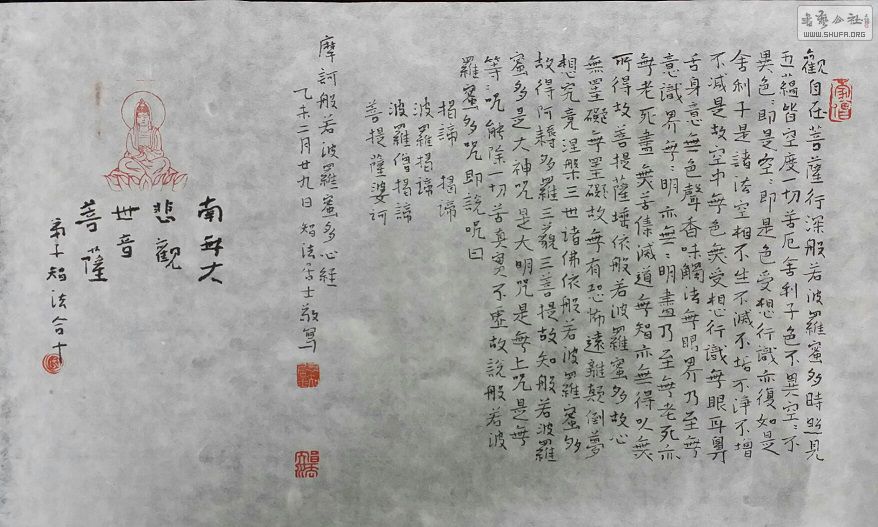 觀自在菩薩行深般若波羅蜜多時照見
五蘊皆空度一切苦厄舍利子色不異空〻不
異色〻即是空〻即是色受想行識亦復如是
舍利子是諸法空相不生不滅不垢不淨不增
不減是故空中無色無受想行識無眼耳鼻
舌身意無色聲香味觸法無眼界乃至無
意識界無〻明亦無〻明盡乃至無老死亦
無老死盡無苦集滅道無智亦無得以無
所得故菩提薩埵依般若波羅蜜多故心
無罣礙無罣礙故無有恐怖遠離顛倒夢
想究竟涅槃三世諸佛依般若波羅蜜多
故得阿耨多羅三藐三菩提故知般若波羅
蜜多是大神咒是大明咒是無上咒是無
等〻咒能除一切苦真實不虛故說般若波
羅蜜多咒即說咒曰
揭諦 揭諦
波羅揭諦
波羅僧揭諦
菩提薩婆訶
摩訶般若波羅蜜多心經
乙未二月廿九日 智法居士敬寫
南無大
悲觀
世音
菩薩
弟子智法合十
WWW.SHUFA.ORG